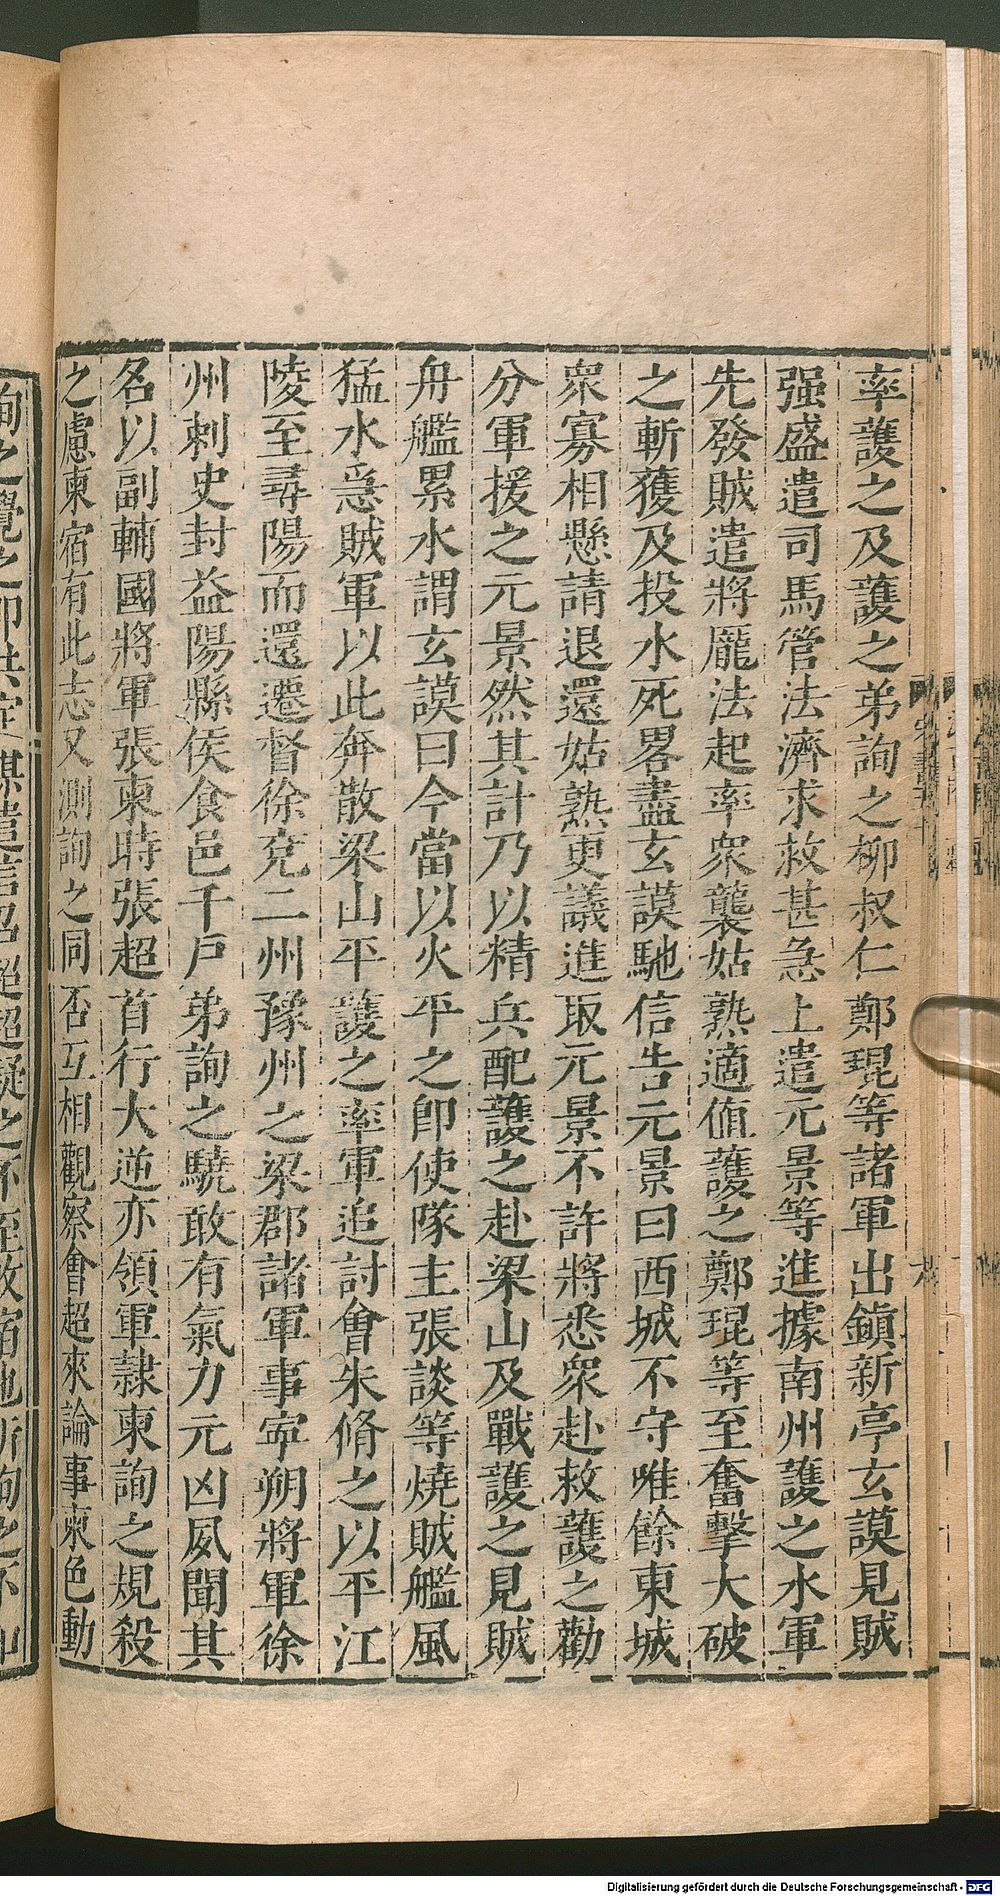 率護之及護之弟詢之柳叔仁鄭琨等諸軍出鎮新亭玄謨見賊
强盛遣司馬管法濟求救甚急上遣元景等進據南州護之水軍
先發賊遣將龎法起率衆襲姑熟適值護之鄭琨等至奮擊大破
之斬獲及投水死畧盡玄謨馳信告元景曰西城不守唯餘東城
衆寡相懸請退還姑熟更議進取元景不許將悉衆赴救護之勸
分軍援之元景然其計乃以精兵配護之赴梁山及戰護之見賊
舟艦累水謂玄謨曰今當以火平之即使隊主張談等燒賊艦風
猛水急賊軍以此奔散梁山平護之率軍追討會朱脩之以平江
陵至尋陽而還遷督徐兗二州豫州之梁郡諸軍事寧朔將軍徐
州刺史封益陽縣侯食邑千戸弟詢之驍敢有氣力元凶夙聞其
名以副輔國將軍張柬時張超首行大逆亦領軍隸柬詢之規殺
之慮柬宿有此志又測詢之同否互相觀察會超來論事柬色動
詢之覺之即共定謀遣信召超超疑之不至改宿他所詢之不知
Digitalisierung gefördert durch die Deutsche Forschungsgemeinschaft - DFG